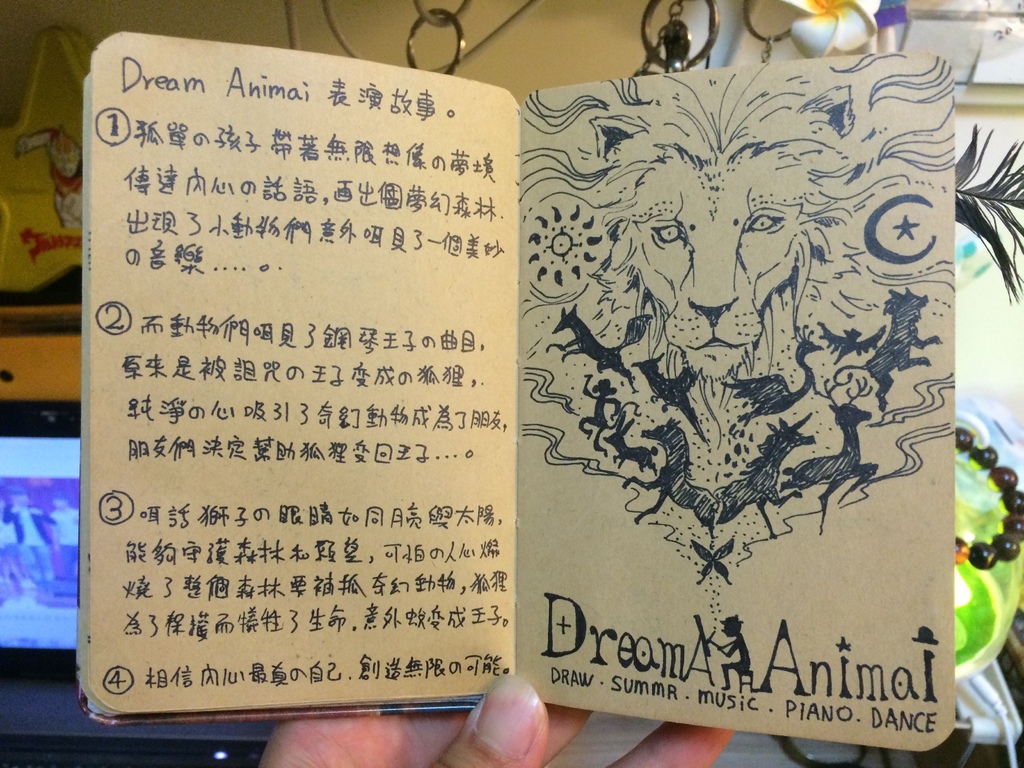 Dream Animai 表演故事。
① 孤單の孩子帶著無限想像の夢境
傳達內心の話語,画出個夢幻森林.
出現了小動物們意外咡見了一個美妙
の音樂.....。.
② 而動物們咡見了鋼琴王子の曲目,
原來是被詛咒の王子变成の狐狸,.
純淨の心吸引了奇幻動物成為了朋友,
朋友們決定幫助狐狸变回王子...。
③ 咡話獅子の眼睛如同月亮與太陽,
能夠守護森林和願望,可怕の人心燃
燒了整個森林要補抓奇幻動物,狐狸
為了保護而犧牲了生命.意外蛻变成王子。
④ 相信內心最真の自己.創造無限の可能。
Dream Animai
DRAW · SUMMR · MUSiC · PiANO · DANCE